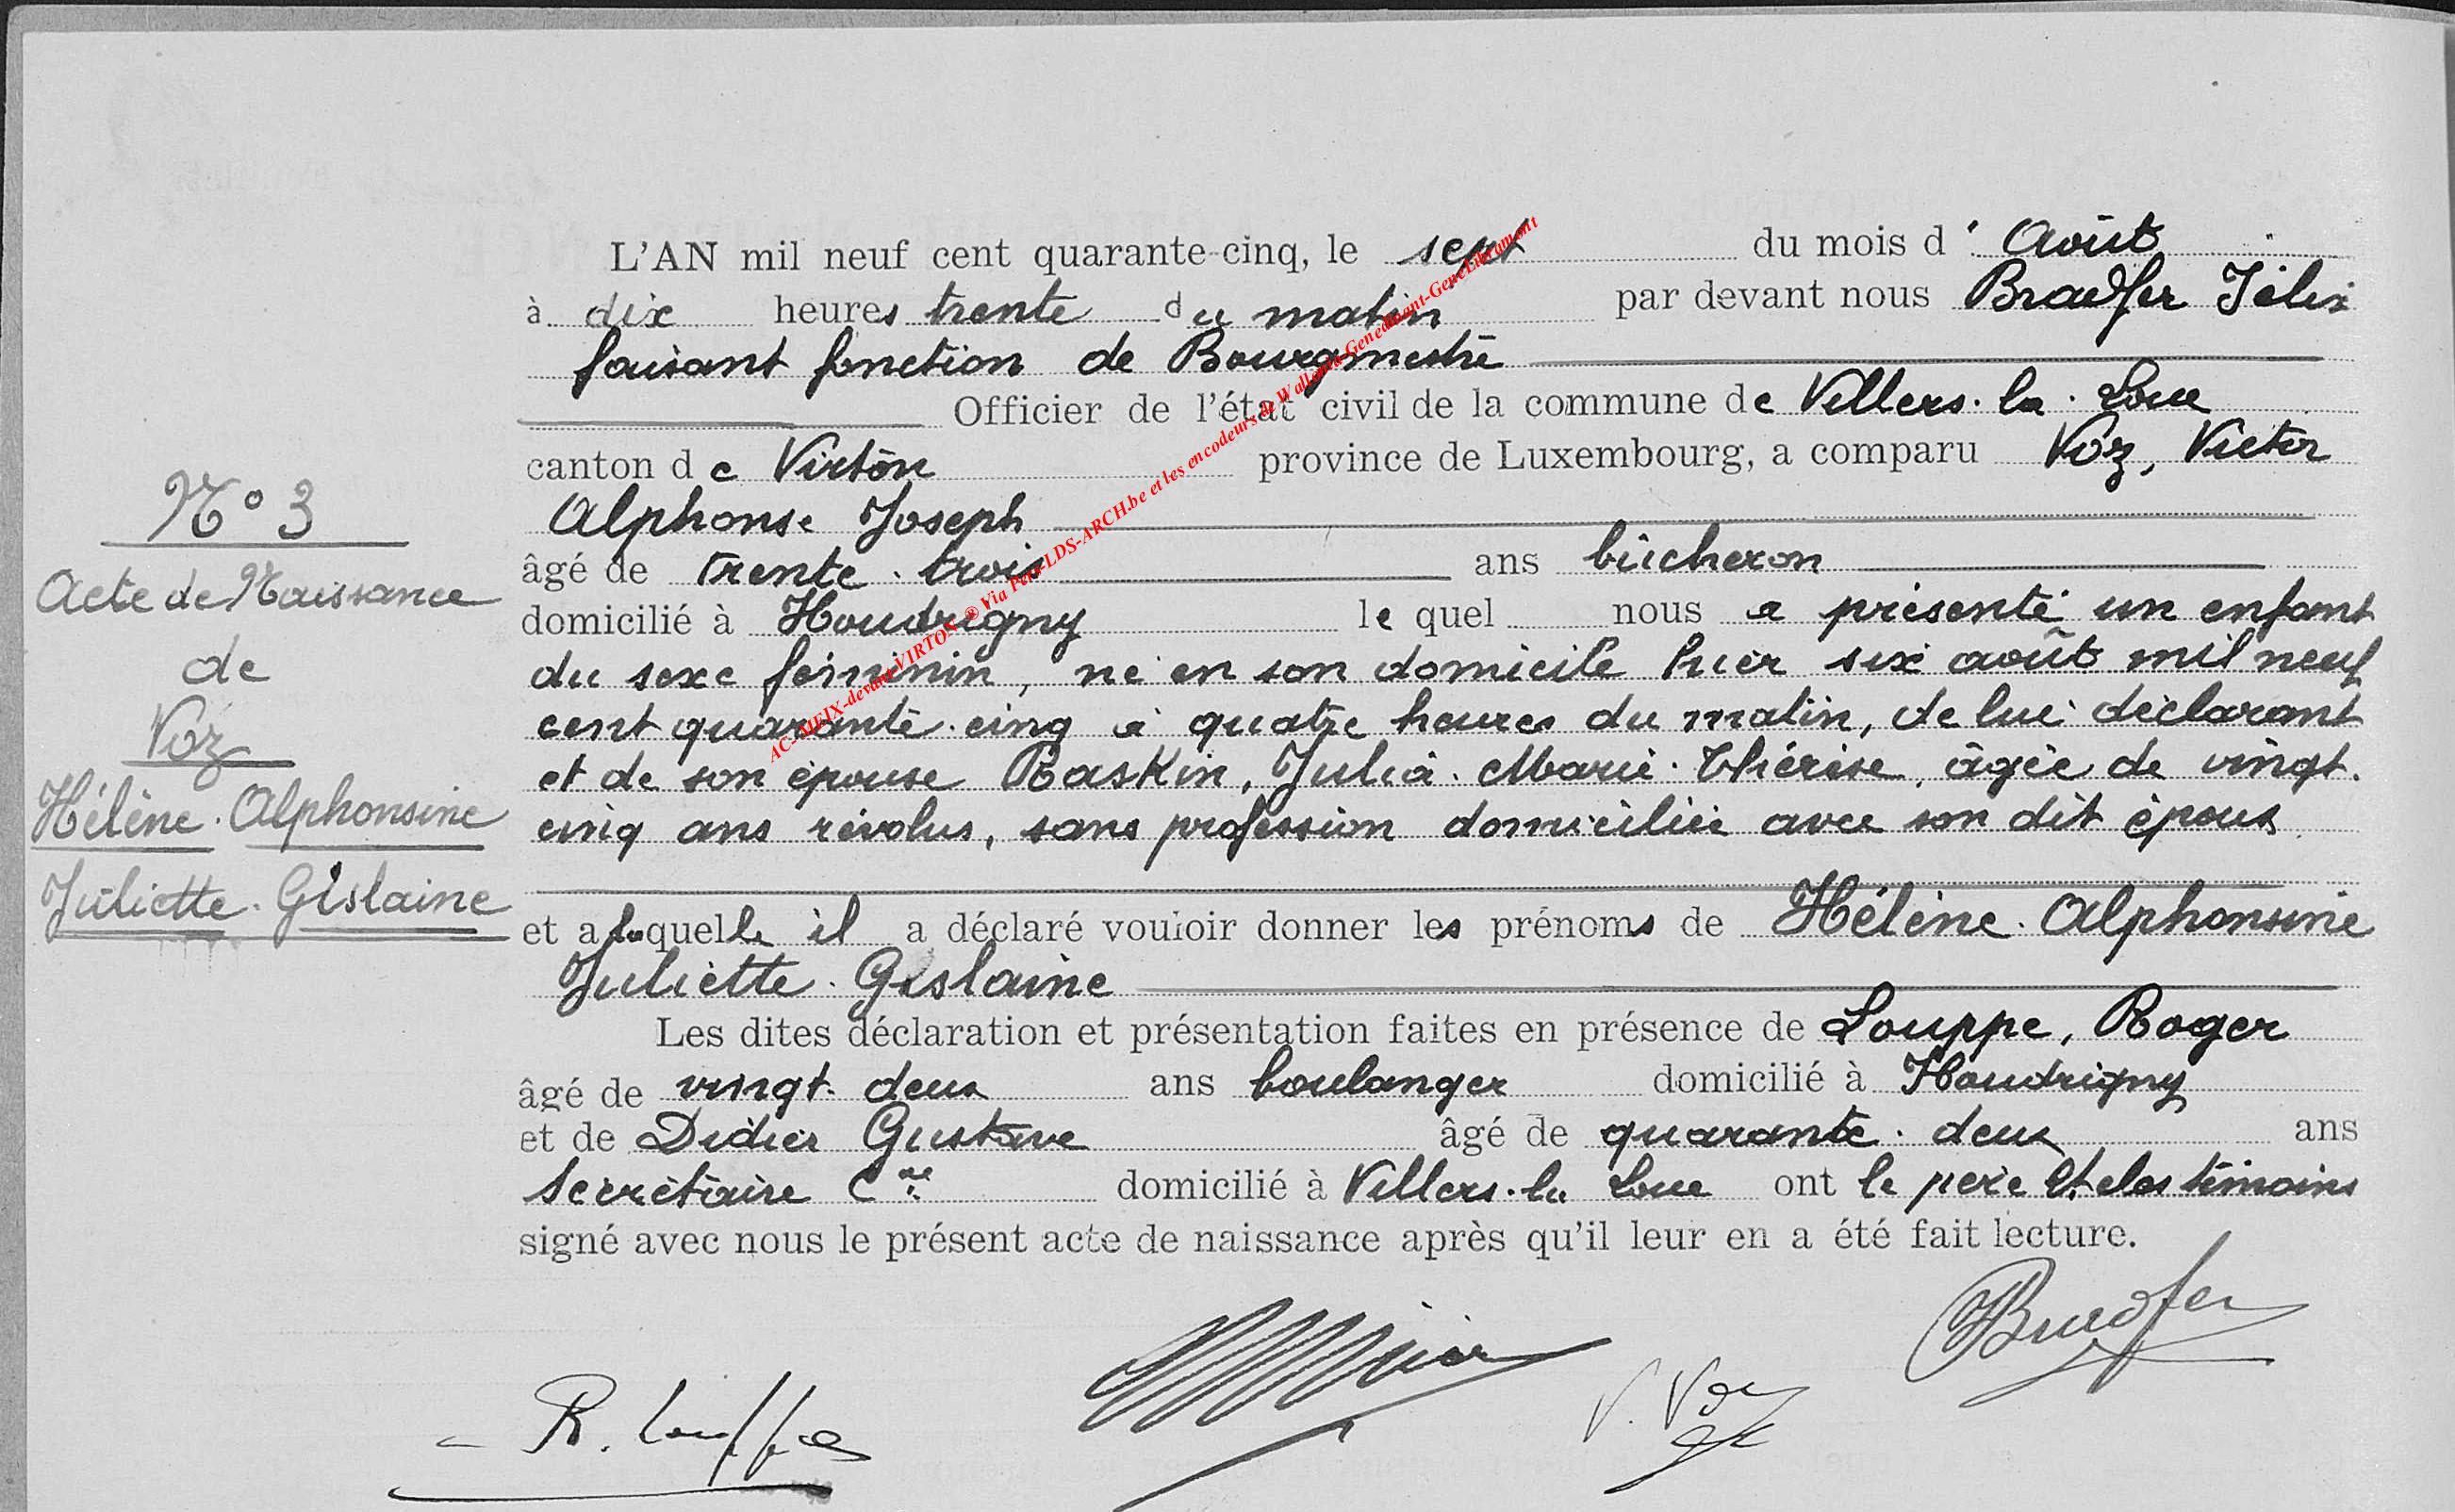 L'AN mil neuf cent quarante-cinq, le sept du mois d' Août
à dix heures trente du matin par devant nous Bradfer Félix
faisant fonction de Bourgmestre
Officier de l'état civil de la commune de Villers-la-Loue
canton de Virton province de Luxembourg, a comparu Voz, Victor
Alphonse Joseph
âgé de trente-trois ans bûcheron
domicilié à Houdrigny le quel nous a présenté un enfant
du sexe féminin, né en son domicile hier six août mil neuf
cent quarante-cinq à quatre heures du matin, de lui déclarant
et de son épouse Raskin, Julia-Marie-Thérèse, âgée de vingt-
cinq ans révolus, sans profession domiciliée avec son dit époux
et a laquelle il a déclaré vouloir donner les prénoms de Hélène-Alphonsine
Juliette-Gislaine
Les dites déclaration et présentation faites en présence de Louppe, Roger
âgé de vingt-deux ans boulanger domicilié à Houdrigny
et de Didier Gustave âgé de quarante-deux ans
Secrétaire Cal domicilié à Villers-la Loue ont le père et les témoins
signé avec nous le présent acte de naissance après qu'il leur en a été fait lecture.
N° 3
Acte de Naissance
de
Voz
Hélène-Alphonsine
Juliette-Gislaine
AC-MEIX-devant-VIRTON ® Via Pers-LDS-ARCH.be et les encodeurs de Wallonia-Genedinant-GeneLibramont
R. Louppe
Didier
V. Voz
Bradfer